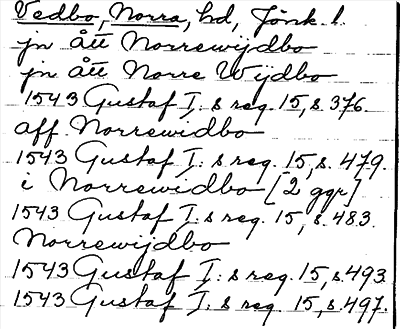 Vedbo, Norra, hd, Jönk. l.
jn ått Norrewijdbo
jn ått Norre Wijdbo
1543 Gustaf I: s reg. 15, s. 376.
aff Norrewidbo
1543 Gustaf I: s reg. 15, s. 479.
i Norrewidbo [2 ggr]
1543 Gustaf I: s reg. 15, s. 483.
Norrewijdbo
1543 Gustaf I: s reg. 15, s. 493
1543 Gustaf I: s reg. 15, s. 497.